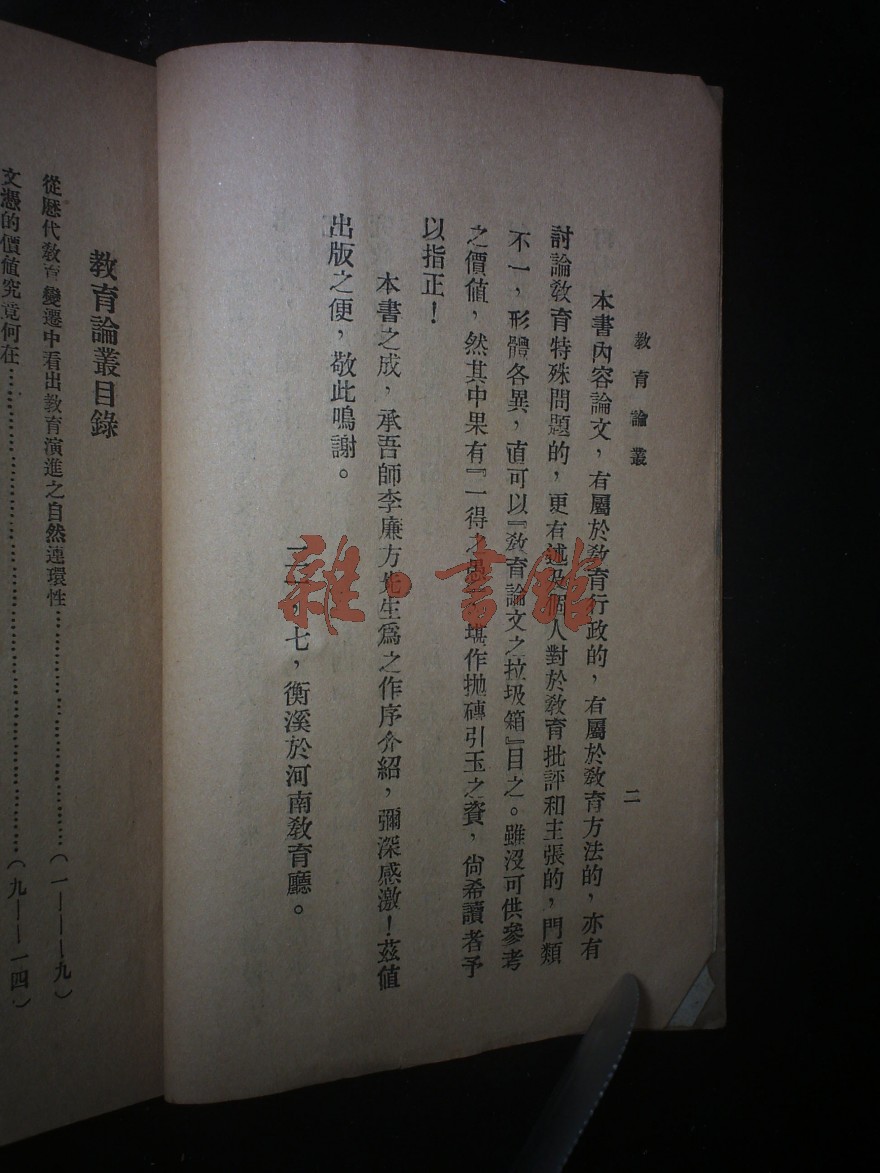 教育論叢
二
本書內容論文，有屬於教育行政的，有屬於教育方法的，亦有
討論教育特殊問題的，更有述及個人對於教育批評和主張的，門類
不一，形體各異，直可以『教育論文之拉圾箱』目之。雖沒可供參考
之價値，然其中果有『一得之愚』堪作拋磚引玉之資，尙希讀者予
以指正！
本書之成，承吾師李廉方先生爲之作序介紹，彌深感激！茲值
出版之便，敬此鳴謝。
七，衡溪於河南教育廳。
教育論叢目錄
從歷代教育變遷中看出教育演進之自然連環性…………（一——九）
文憑的價值究竟何在…………（九——一四）
雜·書館